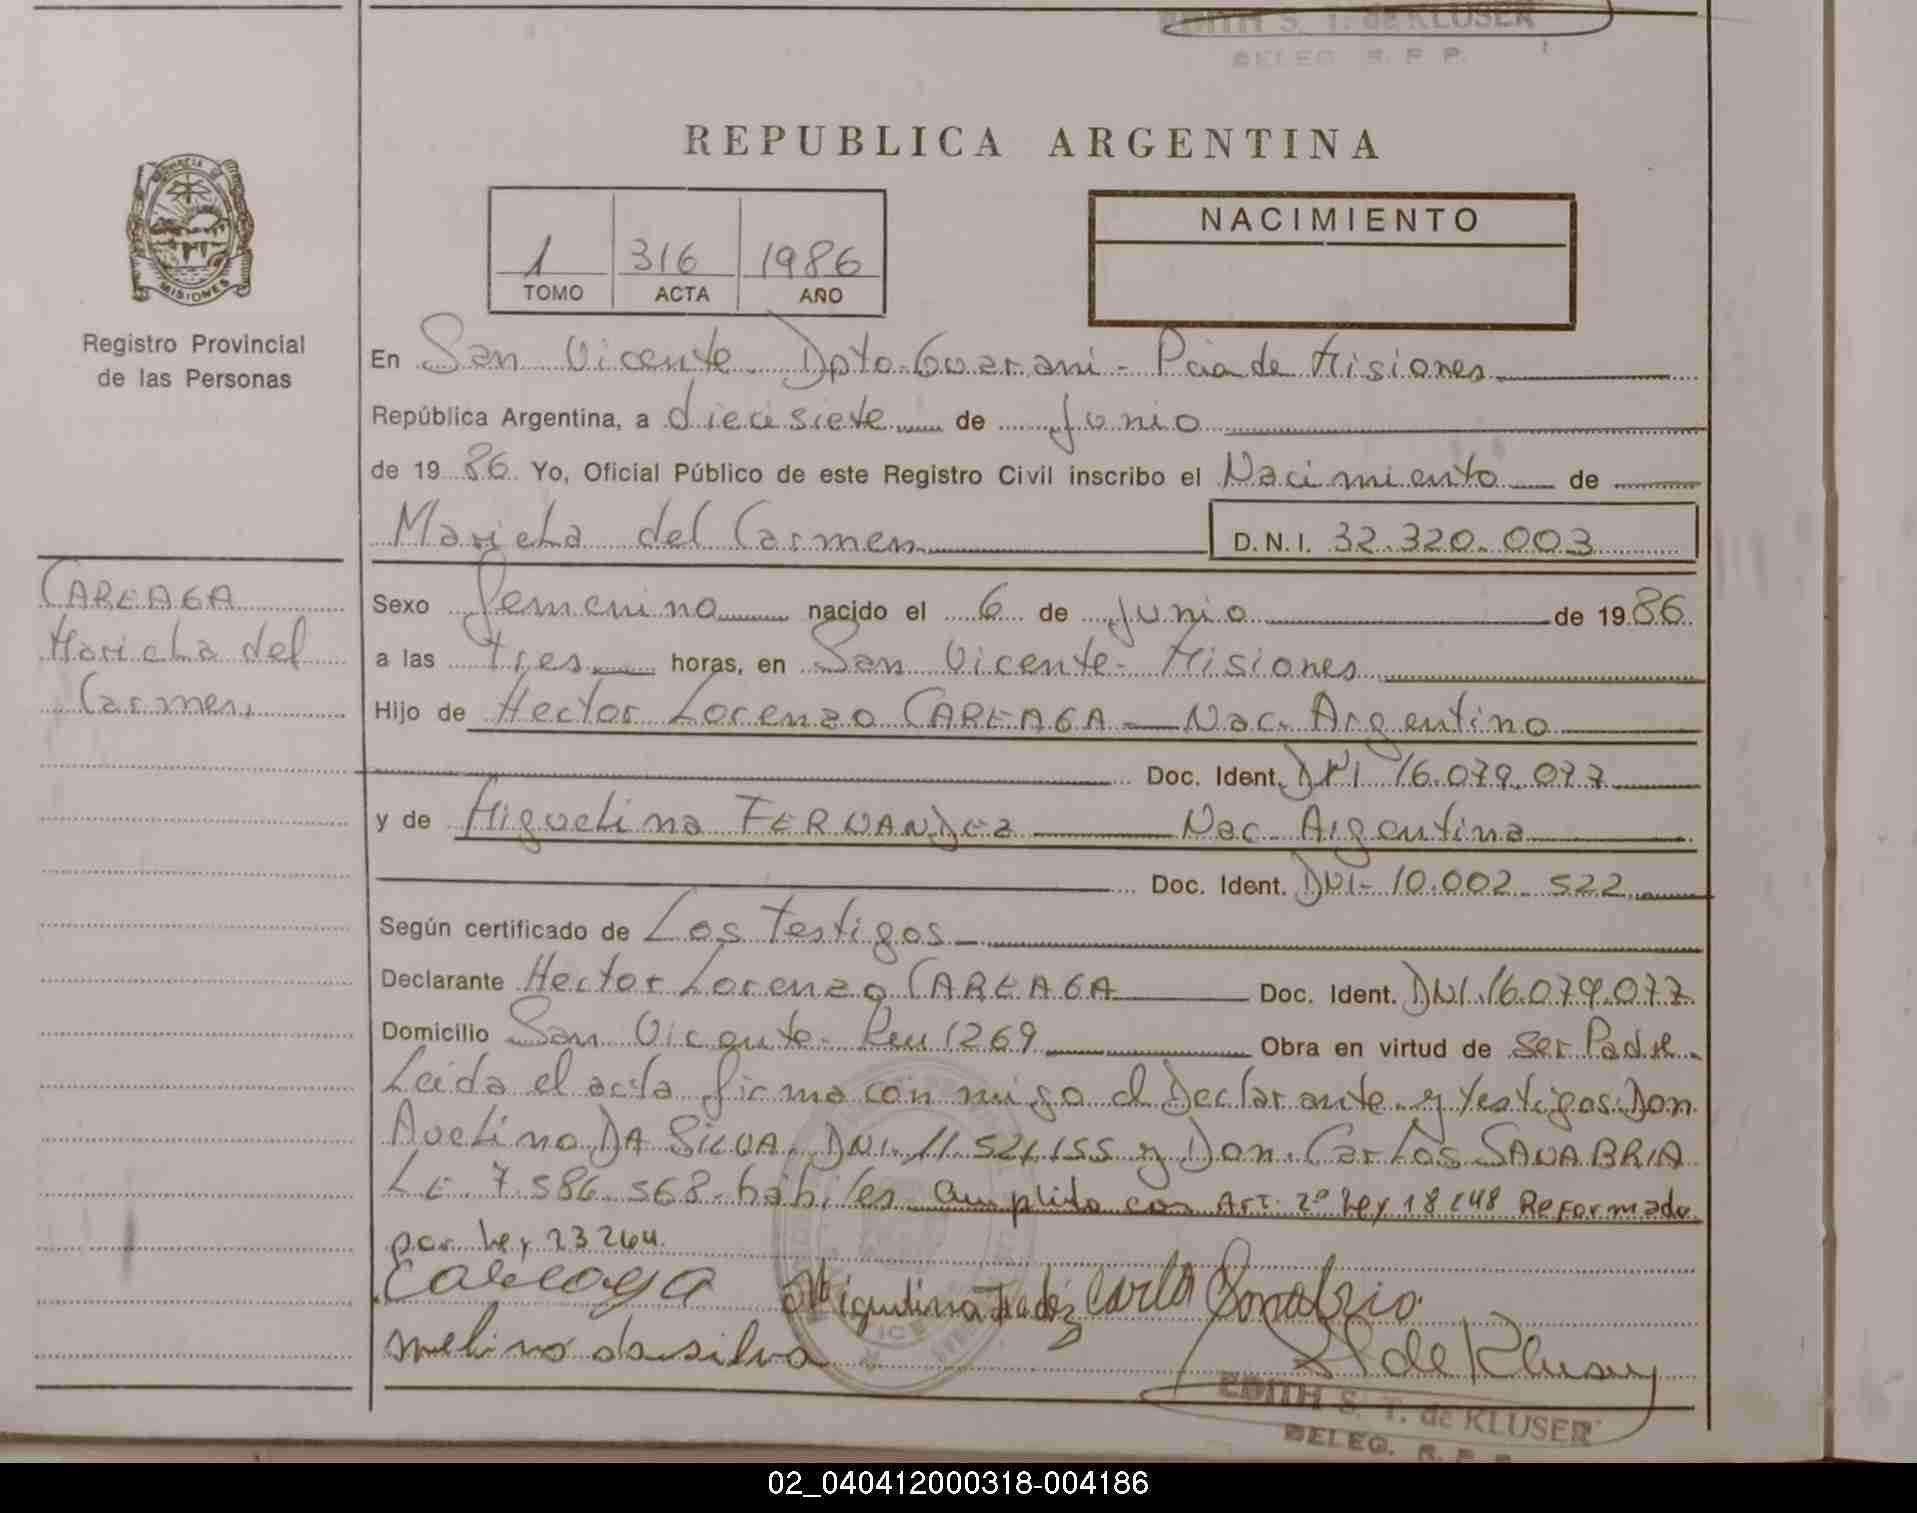 EDITH S. T. de KLUSER
DELEG. R. P. P.
REPUBLICA ARGENTINA
PROVINCIA
MISIONES
Registro Provincial
de las Personas
1 316 1986
TOMO ACTA AÑO
NACIMIENTO
En San Vicente Dpto. Guarani - Pcia de Misiones
República Argentina, a diecisiete de Junio
de 1986 Yo, Oficial Público de este Registro Civil inscribo el Nacimiento de
Mariela del Carmen
D.N.I. 32.320.003
CAREAGA
Mariela del
Carmen
Sexo femenino nacido el 6 de Junio de 1986
a las tres horas, en San Vicente - Misiones
Hijo de Hector Lorenzo CAREAGA - Nac. Argentino
Doc. Ident. DNI 16.079.077
y de Miguelina FERNANDEZ Nac. Argentina
Doc. Ident. DNI - 10.002.522
Según certificado de Los Testigos
Declarante Hector Lorenzo CAREAGA Doc. Ident. DNI. 16.079.077
Domicilio San Vicente - 1269 Obra en virtud de ser Padre
Leida el acta firma con migo el Declarante y testigos: Don
Avelino DA SILVA. DNI. 11.521.155 y Don. Carlos SANABRIA
L.E. 7.586.568 - habiles - Cumplido con Art. 2º Ley 18248 Reformado
por Ley 23264.
Careaga Miguelina Carlo Sanabrio
melino da silva S de Kluser
EDITH S. T. de KLUSER
DELEG. R. P. P.
02_040412000318-004186